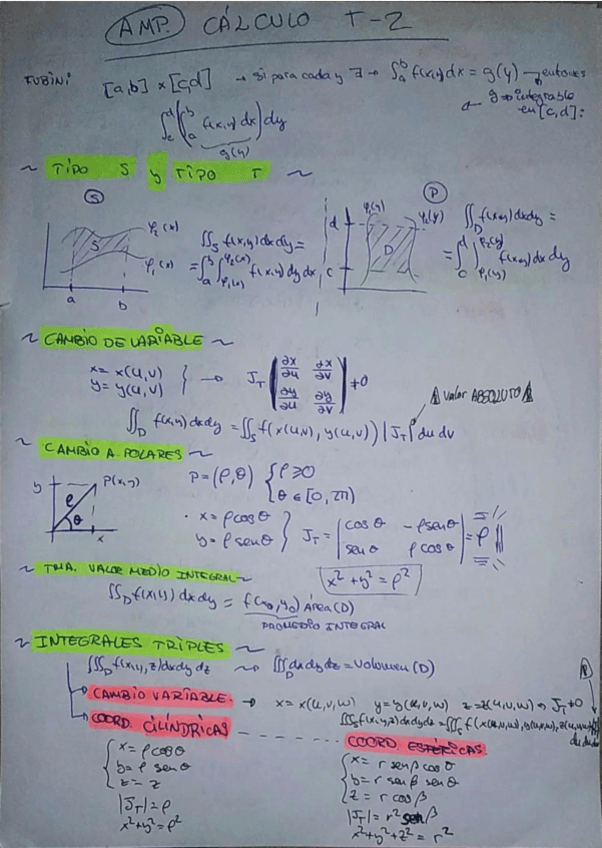 AMP. CÁLCULO T-2
FUBINI: [a,b] × [c,d] → si para cada y ∃ → ∫_a^b f(x,y)dx = g(y) → entonces
g → integrable en [c,d]:
∫_c^d (∫_a^b f(x,y) dx) dy
g(y)
~ TIPO S y TIPO T ~
S
φ₂(x)
S
φ₁(x)
a b
∬_S f(x,y) dxdy =
= ∫_a^b ∫_{φ₁(x)}^{φ₂(x)} f(x,y) dy dx
P
φ₁(y) φ₂(y)
d
D
c
∬_D f(x,y) dxdy =
= ∫_c^d ∫_{φ₁(y)}^{φ₂(y)} f(x,y) dx dy
~ CAMBIO DE VARIABLE ~
x = x(u,v)
y = y(u,v) } → J_T | ∂x/∂u ∂x/∂v |
| ∂y/∂u ∂y/∂v | ≠ 0
valor ABSOLUTO
∬_D f(x,y) dxdy = ∬_S f(x(u,v), y(u,v)) |J_T| du dv
~ CAMBIO A POLARES ~
y P(x,y)
ρ
θ
x
P = (ρ,θ) { ρ ≥ 0
θ ∈ [0, 2π)
· x = ρ cos θ
y = ρ sen θ } J_T = | cos θ -ρ sen θ |
| sen θ ρ cos θ | = ρ
x² + y² = ρ²
~ TMA. VALOR MEDIO INTEGRAL ~
∬_D f(x,y) dxdy = f(x₀,y₀) Área(D)
PROMEDIO INTEGRAL
~ INTEGRALES TRIPLES
∭_D f(x,y,z) dxdy dz ~> ∭_D dxdydz = Volumen (D)
CAMBIO VARIABLE. → x = x(u,v,w) y = y(u,v,w) z = z(u,v,w) → J_T ≠ 0
∭_D f(x,y,z) dxdydz = ∭_S f(x(u,v,w), y(u,v,w), z(u,v,w))
du dv dw
COORD. CILÍNDRICAS
{ x = ρ cos θ
y = ρ sen θ
z = z
|J_T| = ρ
x²+y² = ρ²
COORD. ESFÉRICAS.
{ x = r sen β cos θ
y = r sen β sen θ
z = r cos β
|J_T| = r² sen β
x²+y²+z² = r²